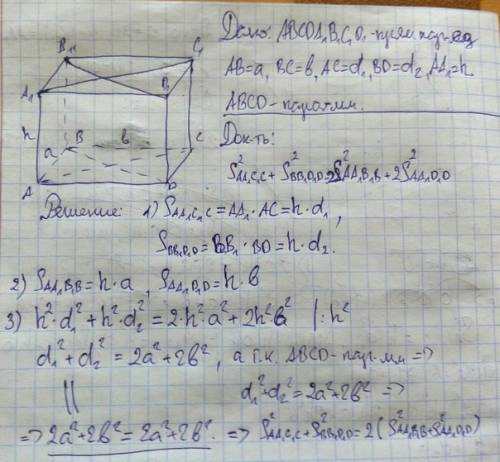 Дано: ABCDA₁B₁C₁D₁ - прям. пар-ед
AB=a, BC=b, AC=d₁, BD=d₂, AA₁=h
ABCD - паралл-мм.
Док-ть:
S²AA₁C₁C + S²BB₁D₁D = 2S²AA₁B₁B + 2S²AA₁D₁D
B₁
C₁
A₁
D₁
h
a
B
b
C
A
D
Решение: 1) SAA₁C₁C = AA₁ · AC = h · d₁,
SBB₁D₁D = BB₁ · BD = h · d₂.
2) SAA₁B₁B = h · a, SAA₁D₁D = h · b
3) h² · d₁² + h² · d₂² = 2 · h² · a² + 2h² · b² | : h²
d₁² + d₂² = 2a² + 2b², а т.к. ABCD - пар-мм =>
||
d₁² + d₂² = 2a² + 2b² =>
=> 2a² + 2b² = 2a² + 2b². => S²AA₁C₁C + S²BB₁D₁D = 2(S²AA₁B₁B + S²AA₁D₁D)